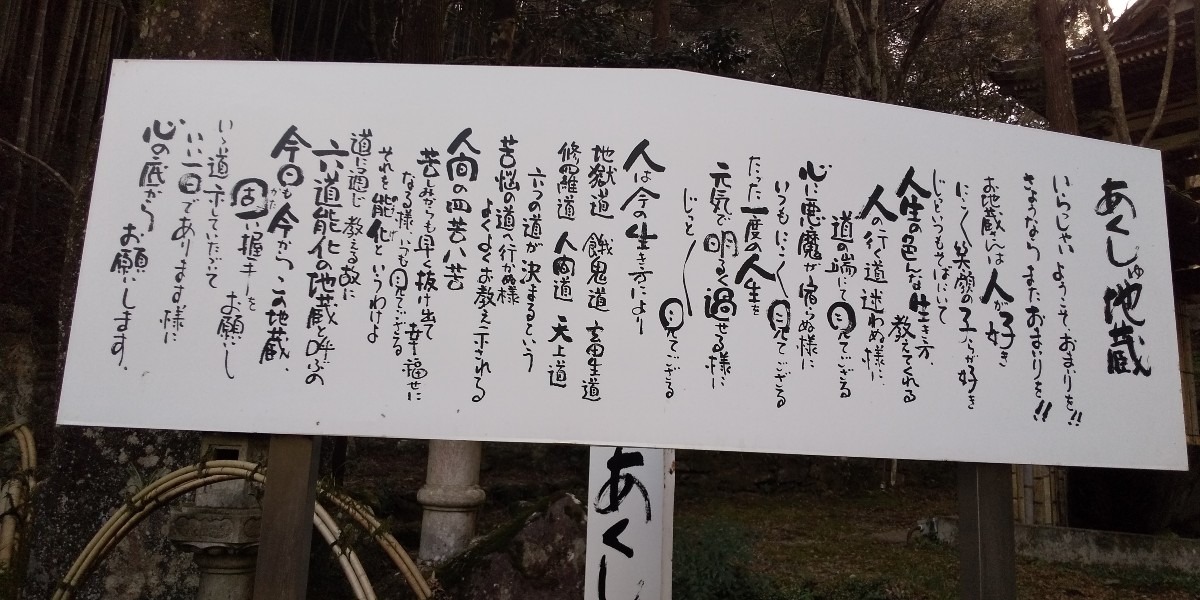 あくしゅ地蔵
いらっしゃい ようこそ、おまいりを!!
さようなら またおまいりを!!
お地蔵さんは 人が好き
にこにこ笑顔の子らが好き
じっといつもそばにいて
人生の色んな生き方、
教えてくれる
人の行く道 迷わぬ様に
道の端にて 見てござる
心に悪魔が宿らぬ様に
いつもにこにこ 見てござる
たった一度の人生を
元気で明るく過せる様に
じっと 見てござる
人は今の生き方により
地獄道 餓鬼道 畜生道
修羅道 人間道 天上道
六つの道が決まるという
苦悩の道へ行かぬ様
よくよくお教え示される
人間の四苦八苦
苦しみからも早く抜け出て 幸福せに
なる様 いつも見てござる
それを能化というわけよ
道に通じ 教える故に
六道能化の地蔵と呼ぶの
今日も今からこの地蔵、
固い握手を お願いし
かた
いい道 示していただいて
いい一日であります様に
心の底から お願いします。
あくし